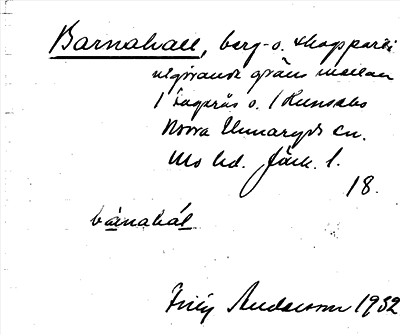 Barnahall, berg- o. skogsparti
utgörande gräns mellan
1 Fagerås o. 1 Runsabo
Norra Unnaryds sn.
Mo hd. Jönk. l.
18.
bárnahál
Frity Anderson 1932